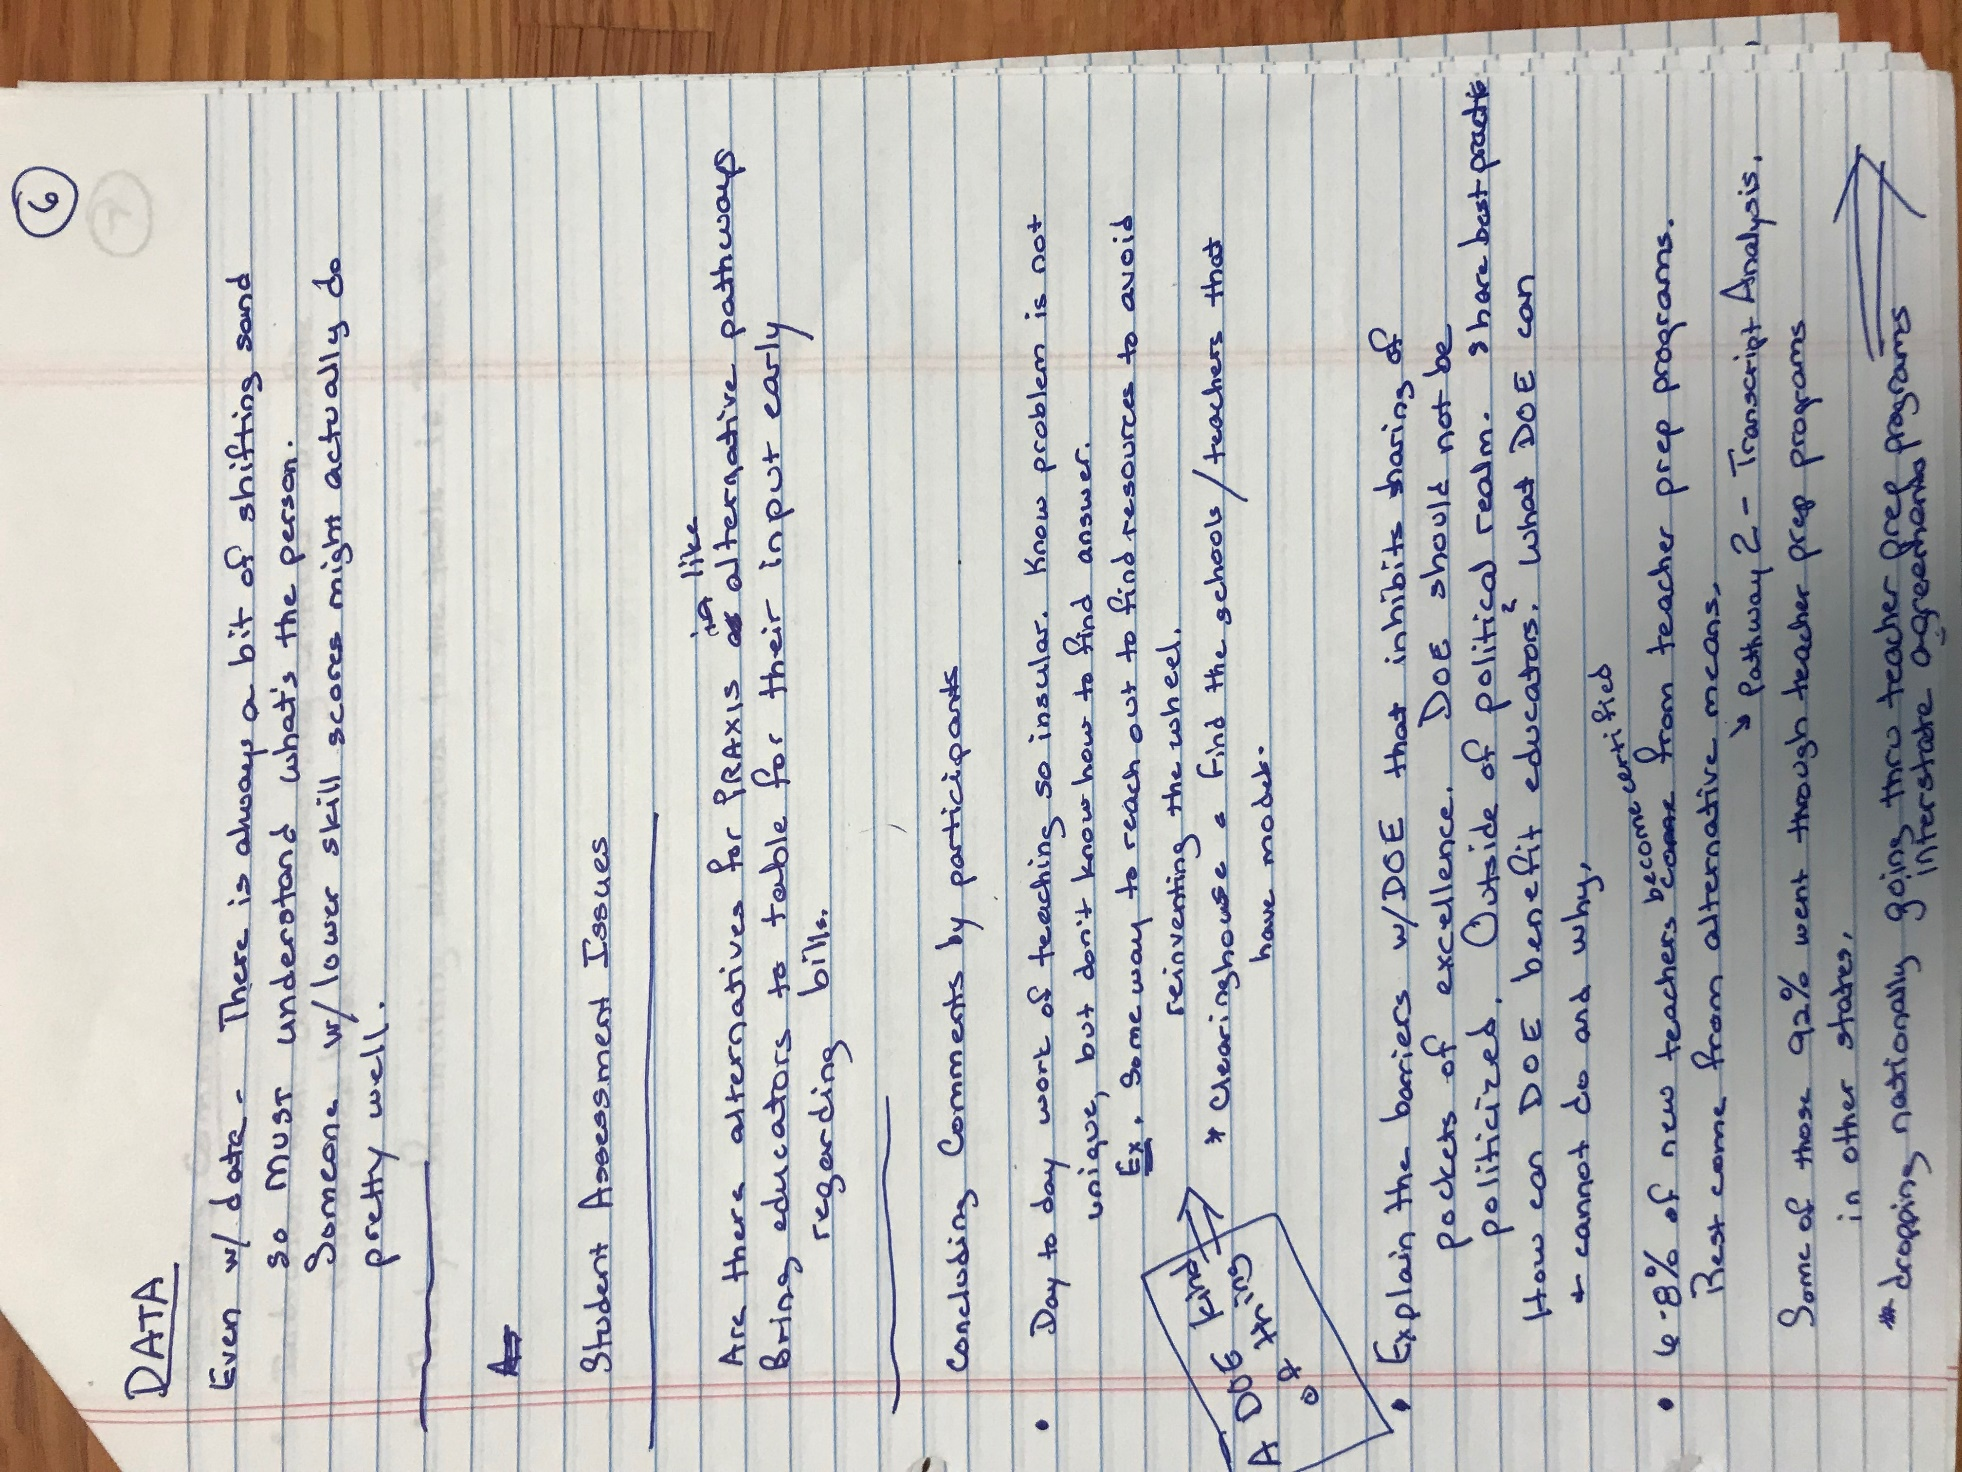 6
DATA
Even w/ data - There is always a bit of shifting sand
so MUST understand what's the person.
Someone w/ lower skill scores might actually do
pretty well.
Student Assessment Issues
in like
Are there alternatives for PRAXIS as alternative pathways
Bring educators to table for their input early
regarding bills.
Concluding Comments by participants
• Day to day work of teaching so insular. Know problem is not
unique, but don't know how to find answer.
Ex. Some way to reach out to find resources to avoid
reinventing the wheel.
* Clearinghouse Find the schools/teachers that
have models.
A DOE kind
of thing
• Explain the barriers w/DOE that inhibits sharing of
pockets of excellence. DOE should not be
politicized. Outside of political realm. share best practices
How can DOE benefit educators? What DOE can
+ cannot do and why.
become certified
• 6-8% of new teachers come from teacher prep programs.
Rest come from alternative means.
↘ Pathway 2 - Transcript Analysis.
Some of those 92% went through teacher prep programs
in other states.
* dropping nationally going thru teacher prep programs
interstate agreements